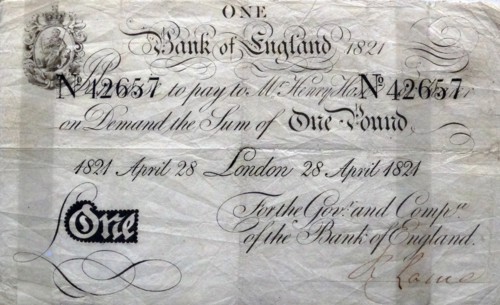 ONE
Bank of England 1821
Nº 42657 to pay to Mr. Henry Nº 42657
on Demand the Sum of One Pound,
1821 April 28 London 28 April 1821
£ One
For the Govr. and Compa.
of the Bank of England.